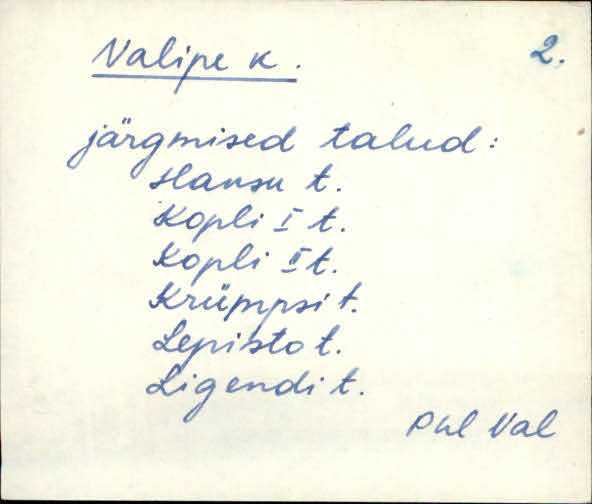 Valipe k. 2.
järgmised talud:
Hansu t.
Kopli I t.
Kopli II t.
Krümpsi t.
Lepisto t.
Ligendi t.
Phl Val